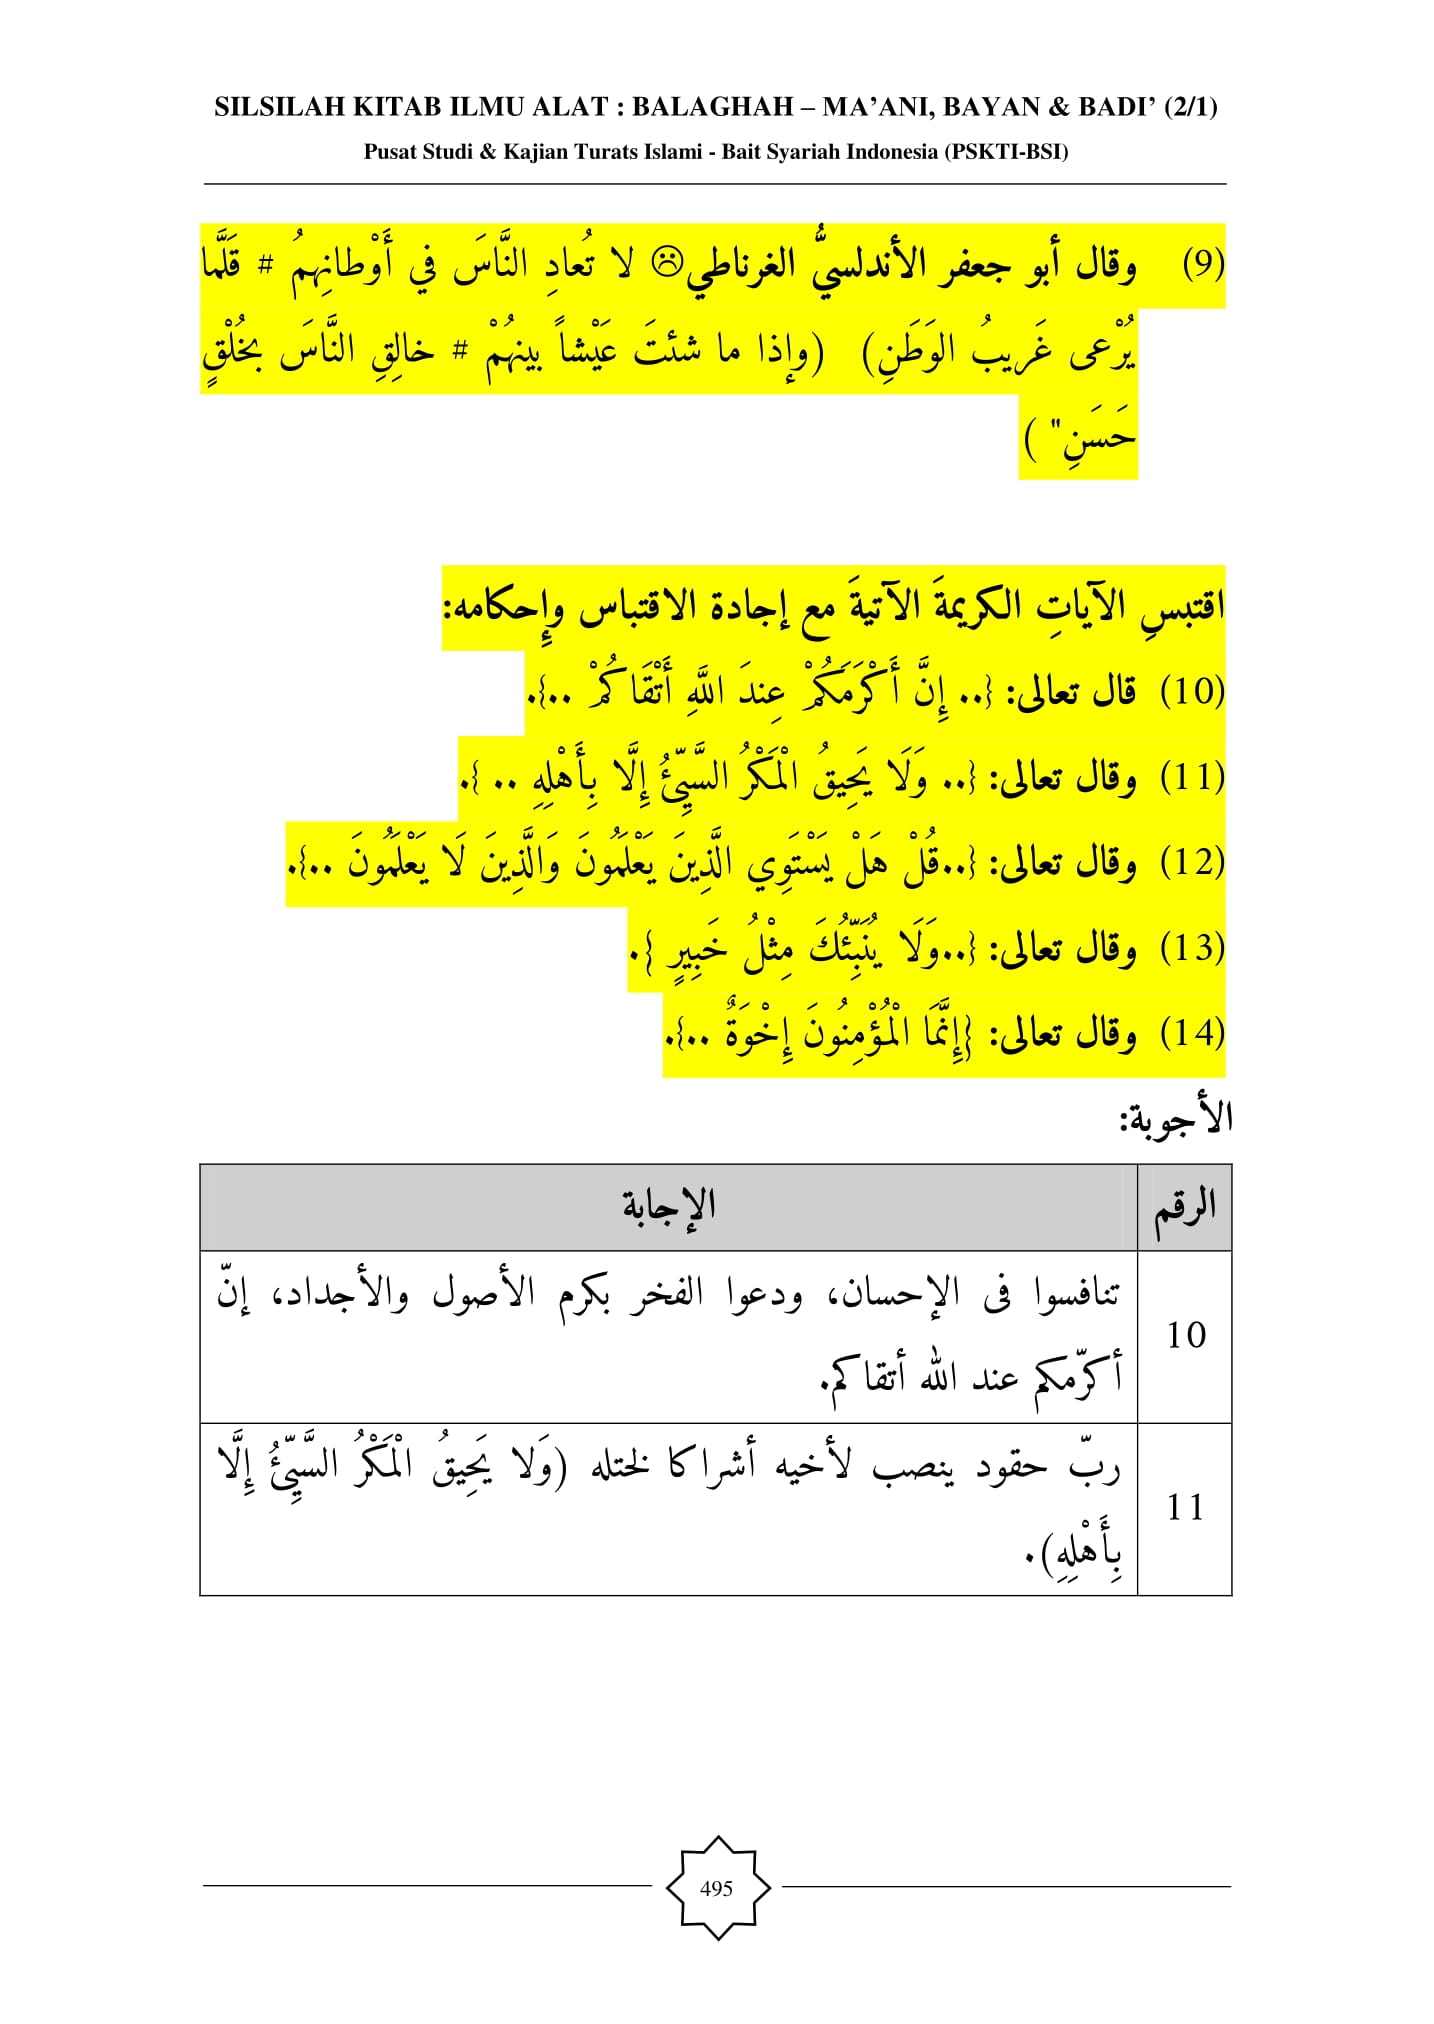 SILSILAH KITAB ILMU ALAT : BALAGHAH – MA’ANI, BAYAN & BADI’ (2/1)
Pusat Studi & Kajian Turats Islami - Bait Syariah Indonesia (PSKTI-BSI)
(9) وقال أبو جعفر الأندلسيُّ الغرناطي☹ لا تُعادِ النَّاسَ في أَوْطانِهِمُ # قَلَّما
يُرْعى غَريبُ الوَطَنِ) (وإذا ما شئتَ عَيْشاً بينهُمْ # خالِقِ النَّاسَ بخُلْقٍ
حَسَنِ" )
اقتبسِ الآياتِ الكريمةَ الآتيةَ مع إجادة الاقتباس وإِحكامه:
(10) قال تعالى: {.. إِنَّ أَكْرَمَكُمْ عِندَ اللَّهِ أَتْقَاكُمْ ..}.
(11) وقال تعالى: {.. وَلَا يَحِيقُ الْمَكْرُ السَّيِّئُ إِلَّا بِأَهْلِهِ .. }.
(12) وقال تعالى: {..قُلْ هَلْ يَسْتَوِي الَّذِينَ يَعْلَمُونَ وَالَّذِينَ لَا يَعْلَمُونَ ..}.
(13) وقال تعالى: {..وَلَا يُنَبِّئُكَ مِثْلُ خَبِيرٍ }.
(14) وقال تعالى: {إِنَّمَا الْمُؤْمِنُونَ إِخْوَةٌ ..}.
الأجوبة:
الرقم الإجابة
تنافسوا فى الإحسان، ودعوا الفخر بكرم الأصول والأجداد، إنّ
10
أكرّمكم عند الله أتقاكم.
ربّ حقود ينصب لأخيه أشراكا لختله (وَلا يَحِيقُ الْمَكْرُ السَّيِّئُ إِلَّا
11
بِأَهْلِهِ).
495